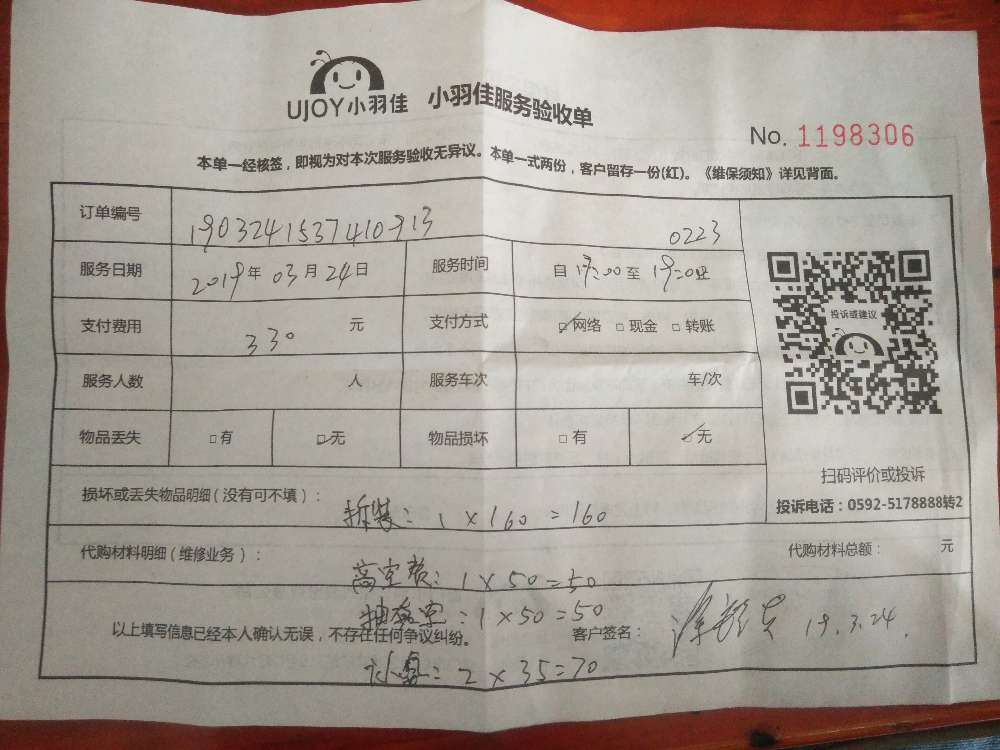 UJOY小羽佳 小羽佳服务验收单
No. 1198306
本单一经核签，即视为对本次服务验收无异议。本单一式两份，客户留存一份(红)。《维保须知》详见背面。
订单编号 1903241537410913 0223
服务日期 2019年 03月 24日 服务时间 自 17:00 至 19:00止
支付费用 330 元 支付方式 网络 □现金 □转账
服务人数 人 服务车次 车/次
物品丢失 □有 □无 物品损坏 □有 无
投诉或建议
扫码评价或投诉
投诉电话：0592-5178888转2
损坏或丢失物品明细(没有可不填)：
拆装：1×160=160
代购材料明细(维修业务)： 代购材料总额： 元
高空费：1×50=50
抽真空：1×50=50
以上填写信息已经本人确认无误，不存在任何争议纠纷。 客户签名： 19.3.24.
2×35=70